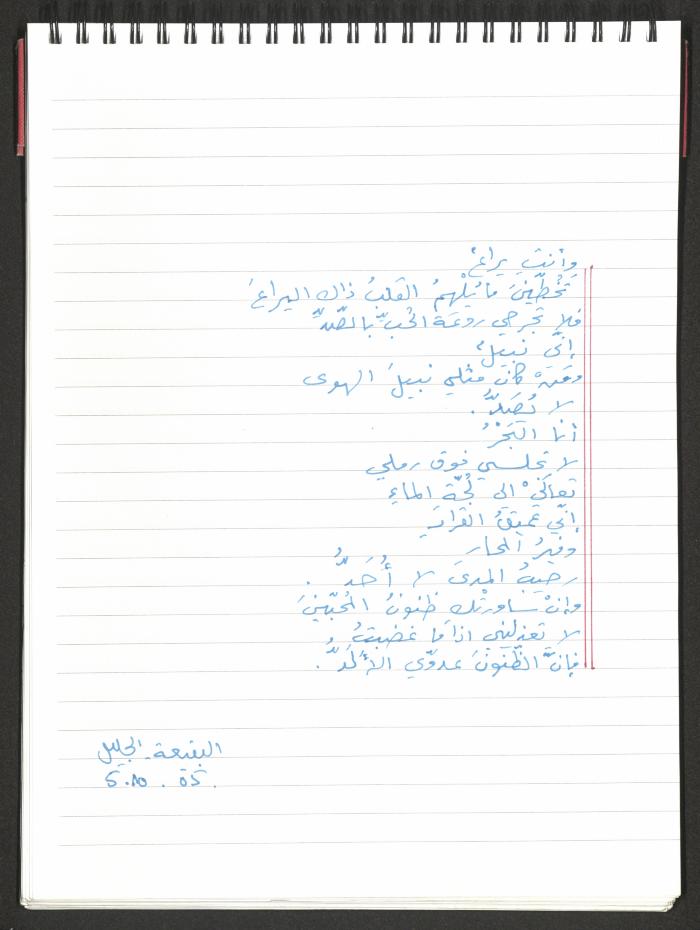 وأنتِ يراعٌ
تَخُطّينَ ما يُلْهِمُ القلبُ ذاك اليراعَ
فلا تجرحي روعَة الحُبِّ بالصَّدِّ
إنّي نبيلٌ
ومَنْ كانَ مثلي نبيلَ الهوى
لا يُصَدُّ .
أنا البَحْرُ
لا تجلسي فوق رملي
تعالَيْ الى لُجَّة الماءِ
إنّي عميقُ القرارِ
وفيرُ المحار
رحيبُ المدى لا أُحَدُّ .
وإنْ ساورَتْك ظنونُ المُحبّينَ
لا تعذليني اذا ما غضبتُ
فإنَّ الظّنونَ عدوّي الألَدُّ .
البقيعة - الجليل
5.10 . 05